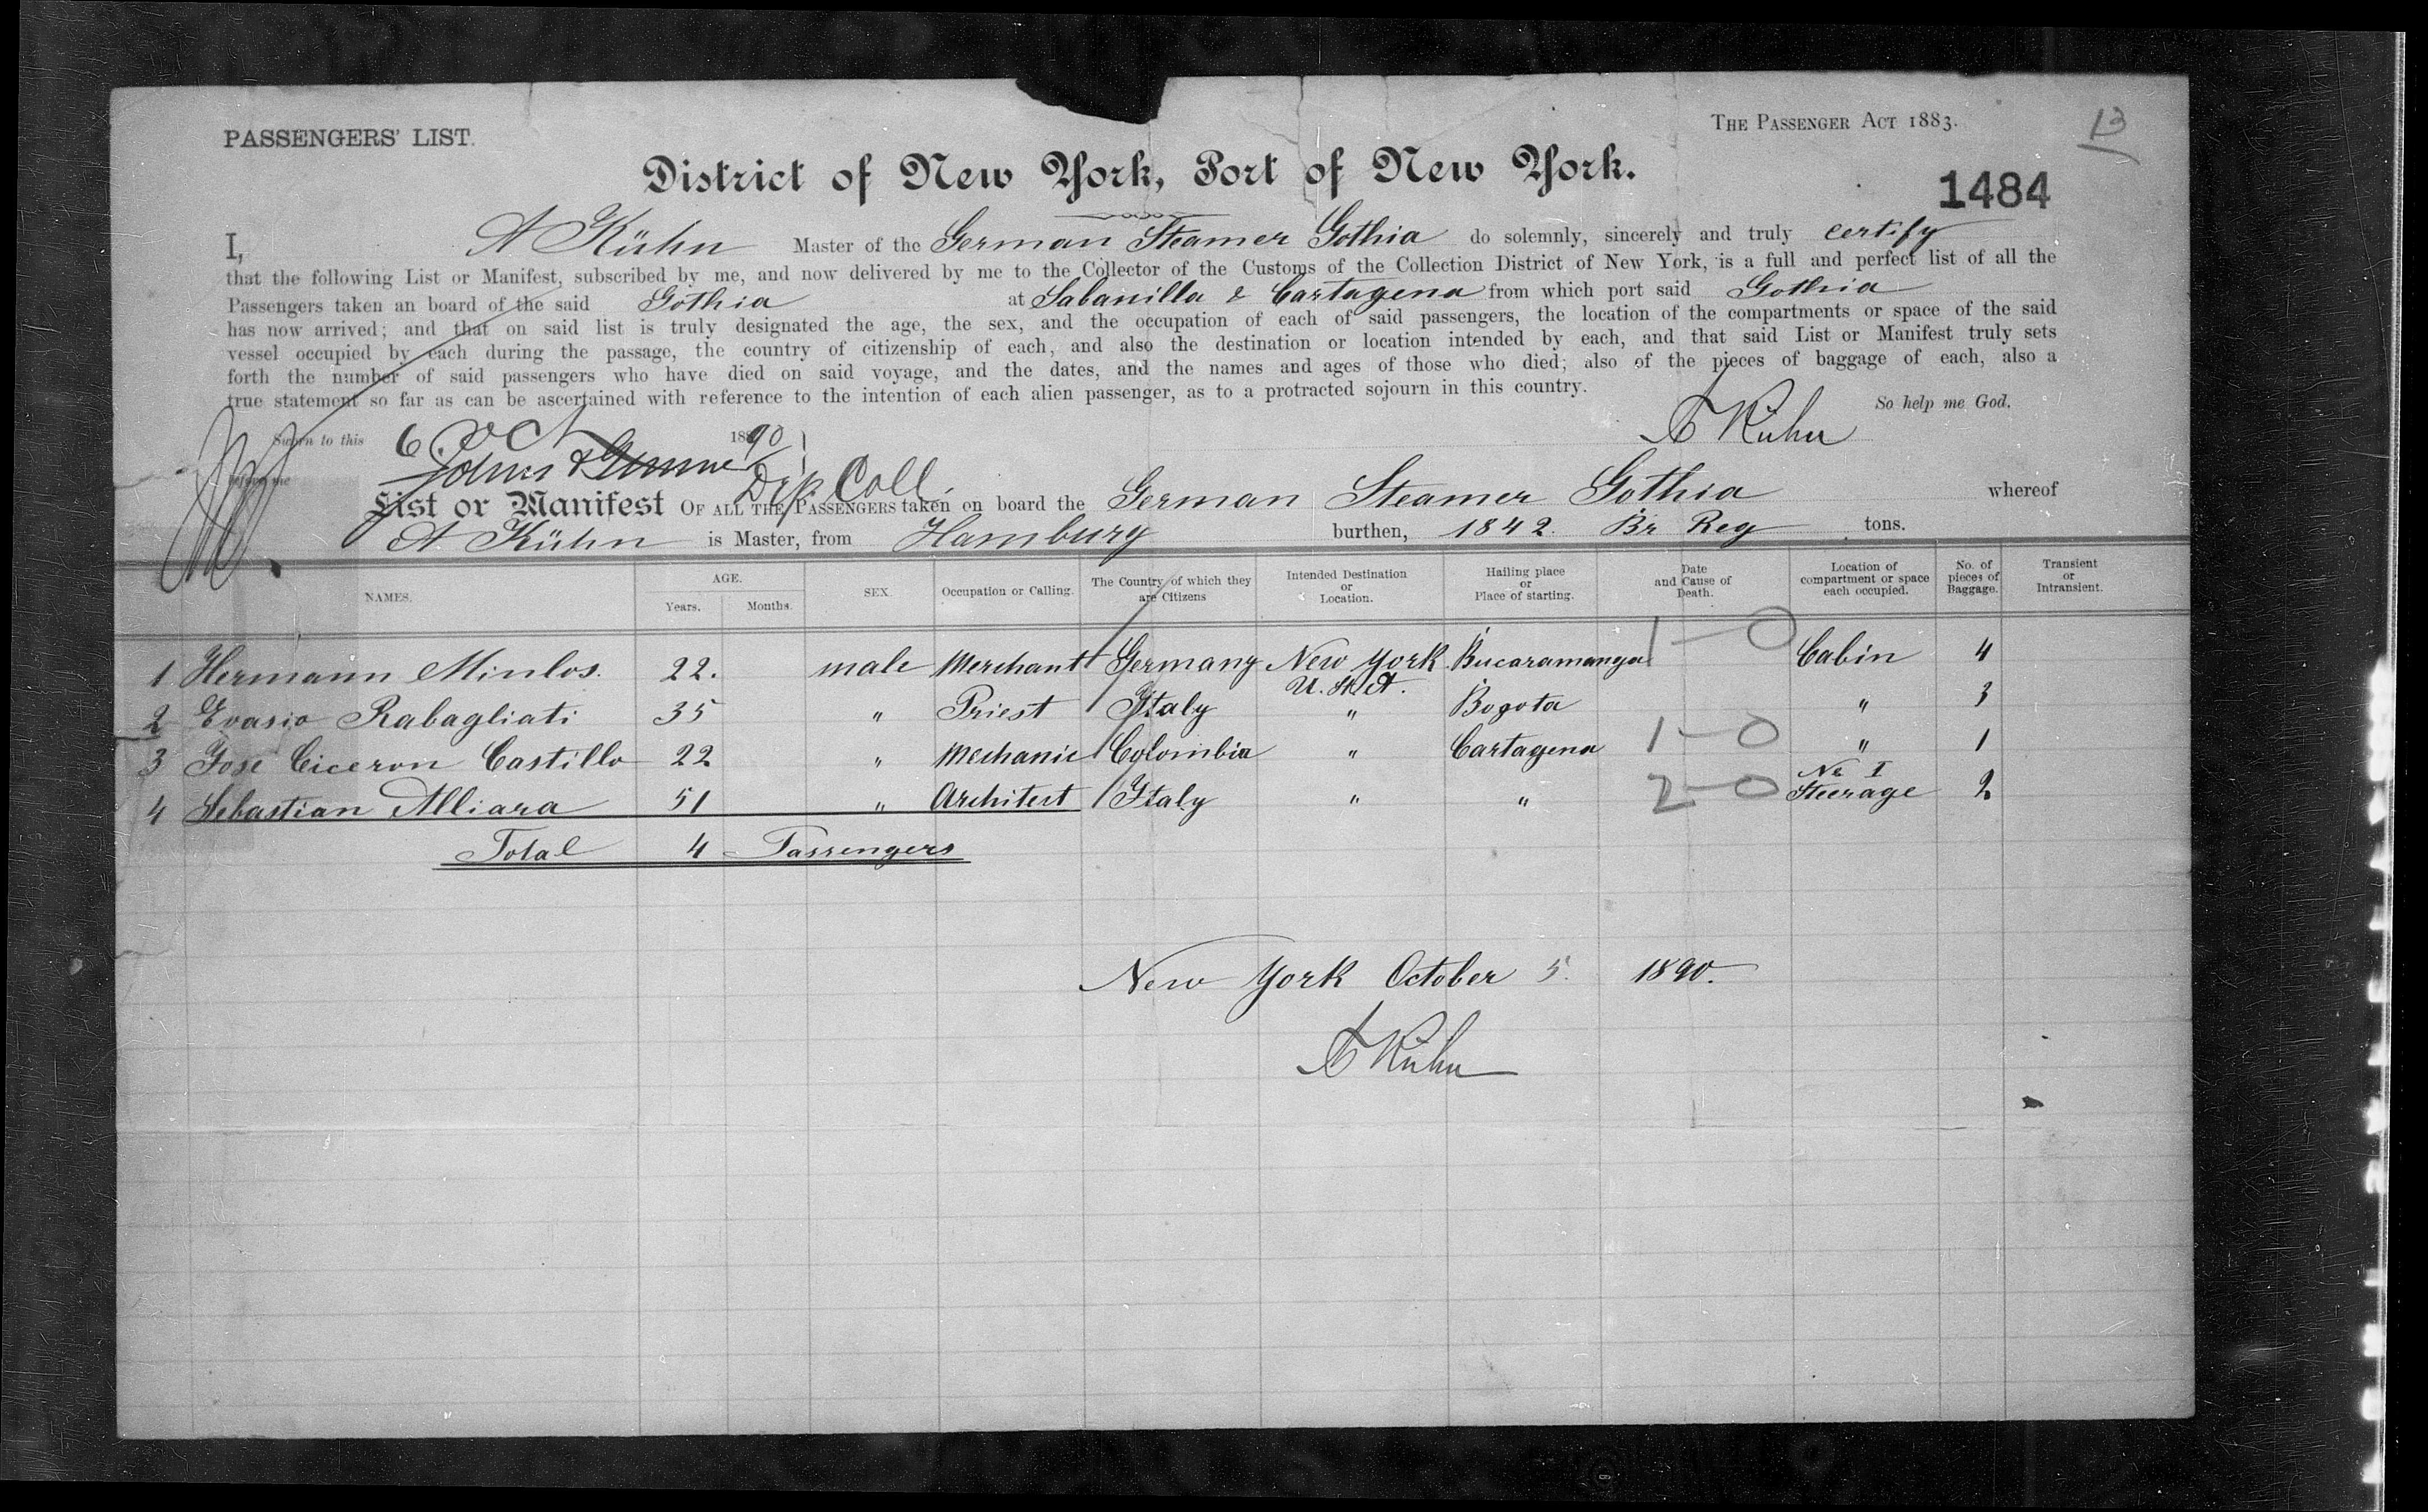 PASSENGERS' LIST.
THE PASSENGER ACT 1883.
13
District of New York, Port of New York.
1484
I, A Kühn Master of the German Steamer Gothia do solemnly, sincerely and truly certify
that the following List or Manifest, subscribed by me, and now delivered by me to the Collector of the Customs of the Collection District of New York, is a full and perfect list of all the
Passengers taken an board of the said Gothia at Sabanilla & Cartagena from which port said Gothia
has now arrived; and that on said list is truly designated the age, the sex, and the occupation of each of said passengers, the location of the compartments or space of the said
vessel occupied by each during the passage, the country of citizenship of each, and also the destination or location intended by each, and that said List or Manifest truly sets
forth the number of said passengers who have died on said voyage, and the dates, and the names and ages of those who died; also of the pieces of baggage of each, also a
true statement so far as can be ascertained with reference to the intention of each alien passenger, as to a protracted sojourn in this country.
So help me God.
A Kühn
Sworn to this 6 Oct 1890
before me
Dep. Coll.
List or Manifest OF ALL THE PASSENGERS taken on board the German Steamer Gothia whereof
A Kühn is Master, from Hamburg burthen, 1842. Br Reg tons.
NAMES. AGE. Years. Months. SEX. Occupation or Calling. The Country of which they are Citizens Intended Destination or Location. Hailing place or Place of starting. Date and Cause of Death. Location of compartment or space each occupied. No. of pieces of Baggage. Transient or Intransient.
1 Hermann Minlos. 22. male Merchant Germany New York U. St. A. Bucaramanga 1-0 Cabin 4
2 Evasio Rabagliati 35 " Priest Italy " Bogota " 3
3 Jose Ciceron Castillo 22 " Mechanic Colombia " Cartagena 1-0 " 1
4 Sebastian Alliara 51 " Architect Italy " " 2-0 No I Steerage 2
Total 4 Passengers
New York October 5. 1890.
A Kühn